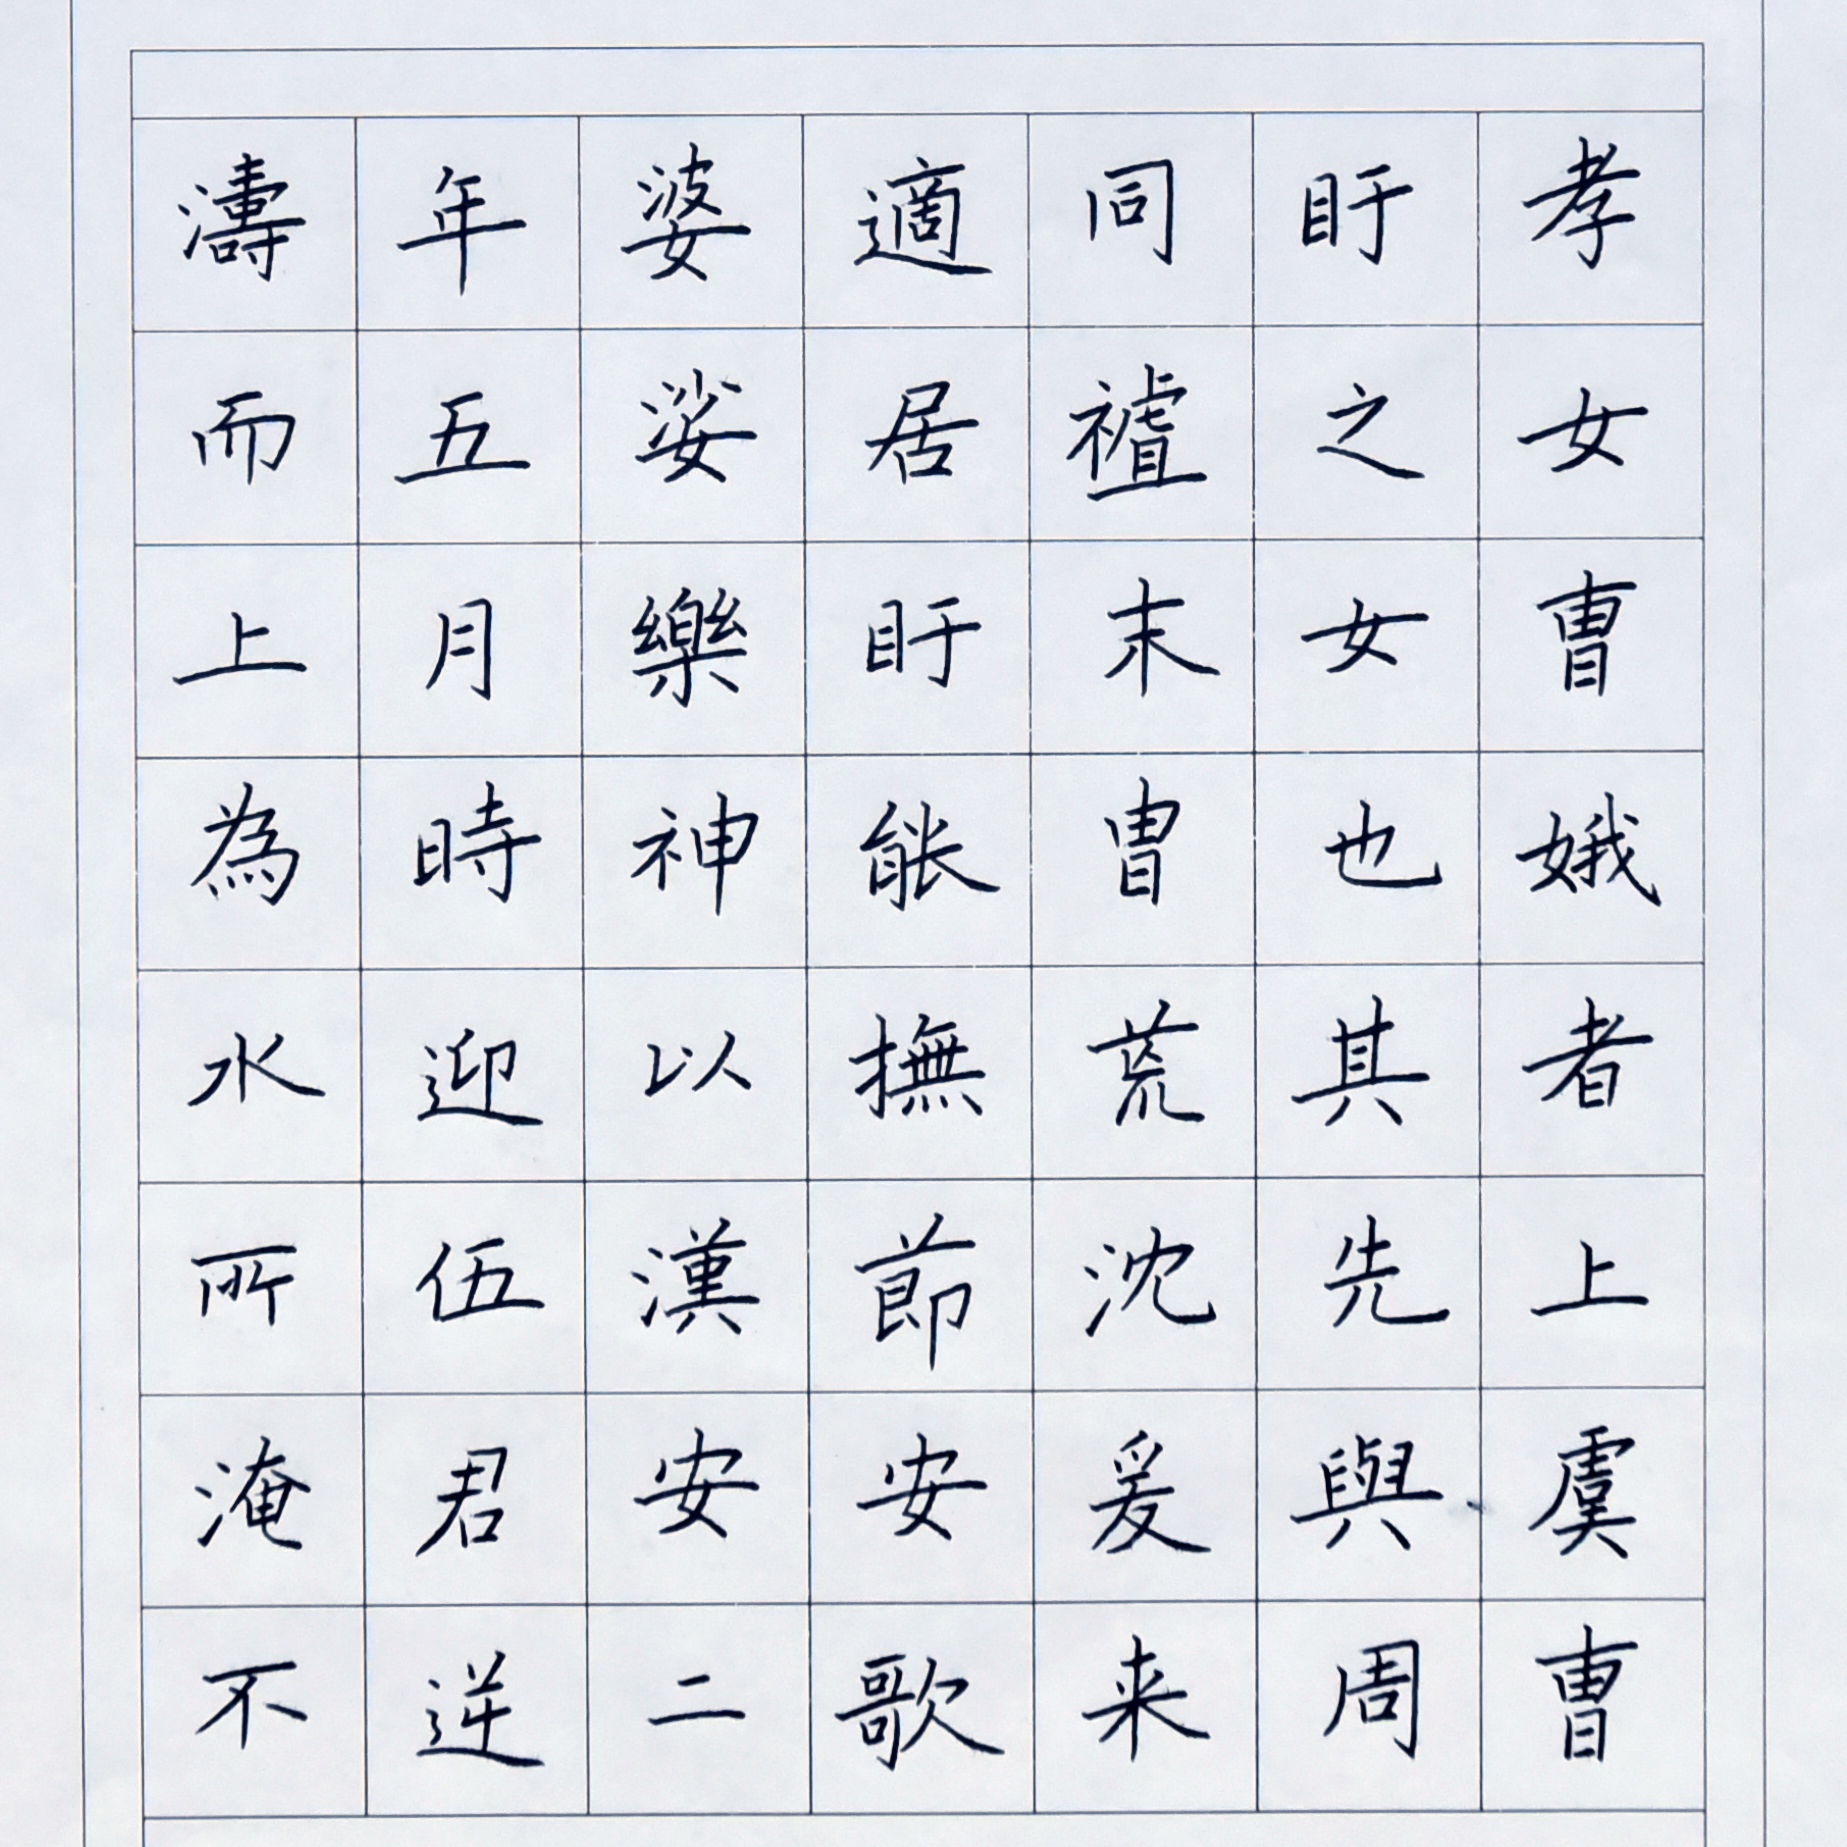 孝女曹娥者上虞曹
盱之女也其先與周
同禇末冑荒沈爰来
適居盱能撫節安歌
婆娑樂神以漢安二
年五月時迎伍君逆
濤而上為水所淹不